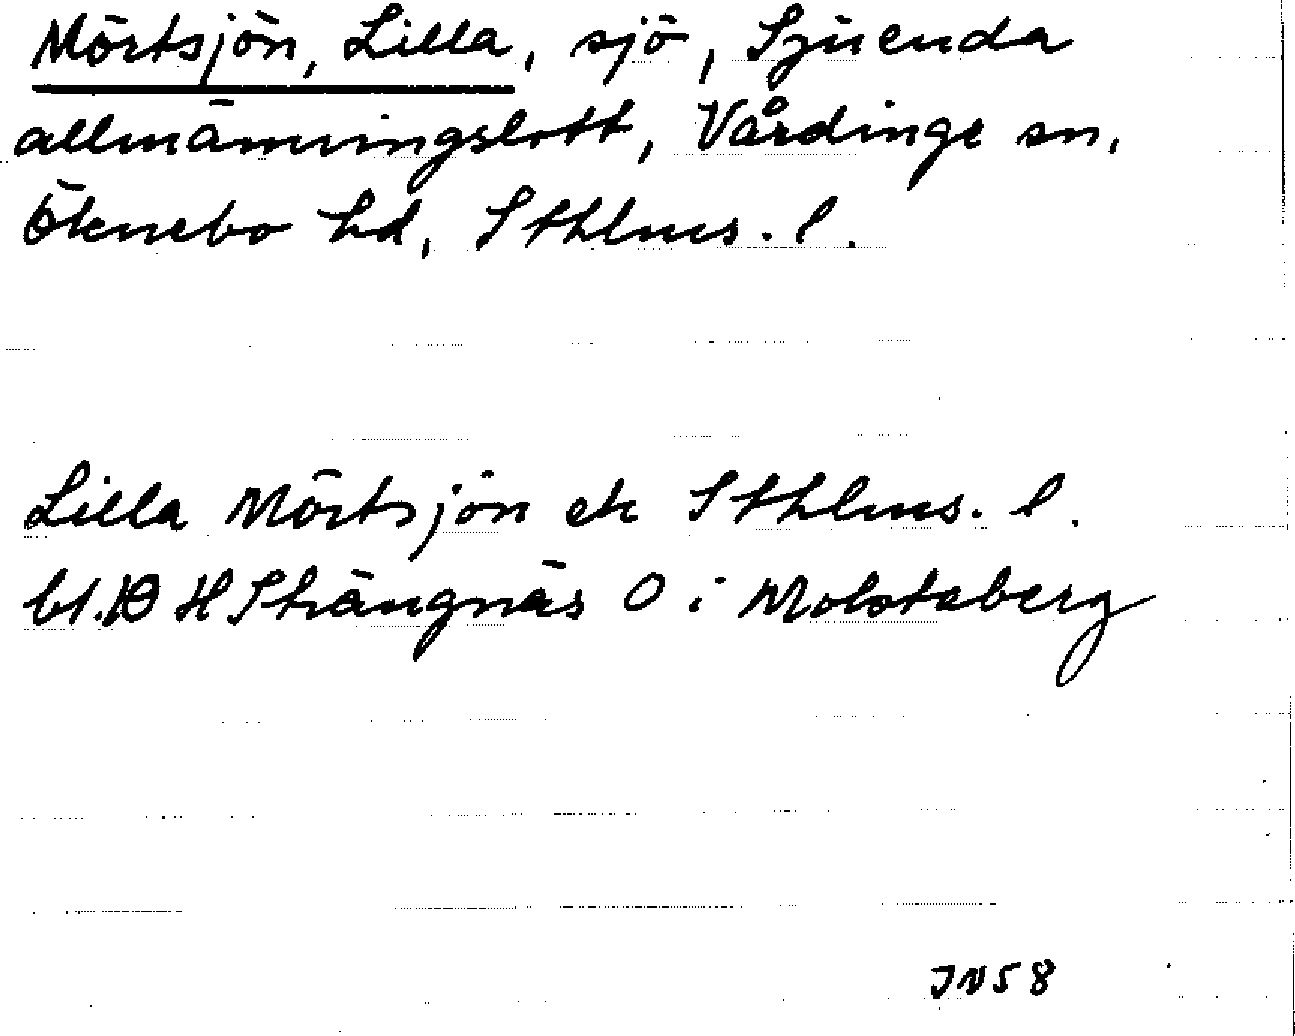 Mörtsjön, Lilla, sjö, Sjuenda
allmänningslott, Vårdinge sn,
Öknebo hd, Sthlms. l.
Lilla Mörtsjön ek Sthlms. l.
bl. 10 H Strängnäs O i Molstaberg
JN58